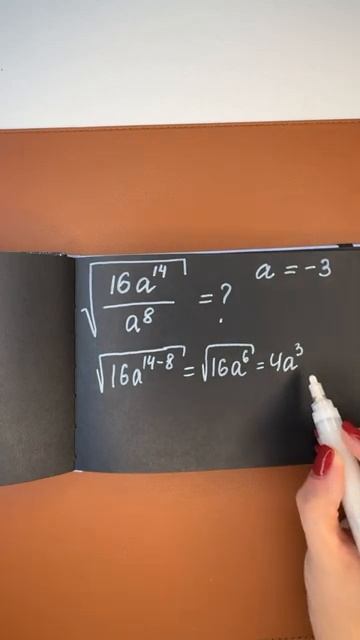 √(16a¹⁴/a⁸) = ? a = -3
√(16a¹⁴⁻⁸) = √(16a⁶) = 4a³